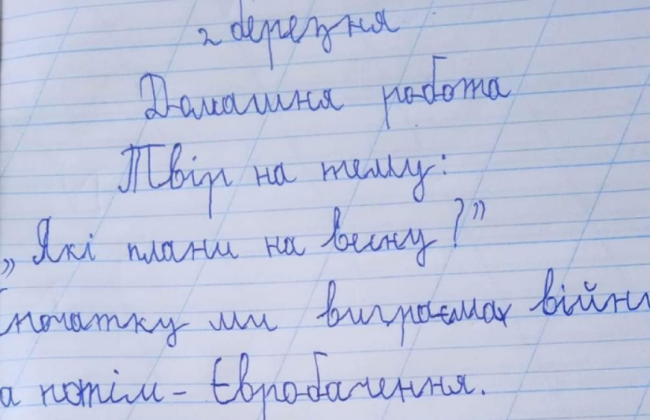 2 березня
Домашня робота
Твір на тему:
„Які плани на весну?”
початку ми виграємо війн
а потім - Євробачення.